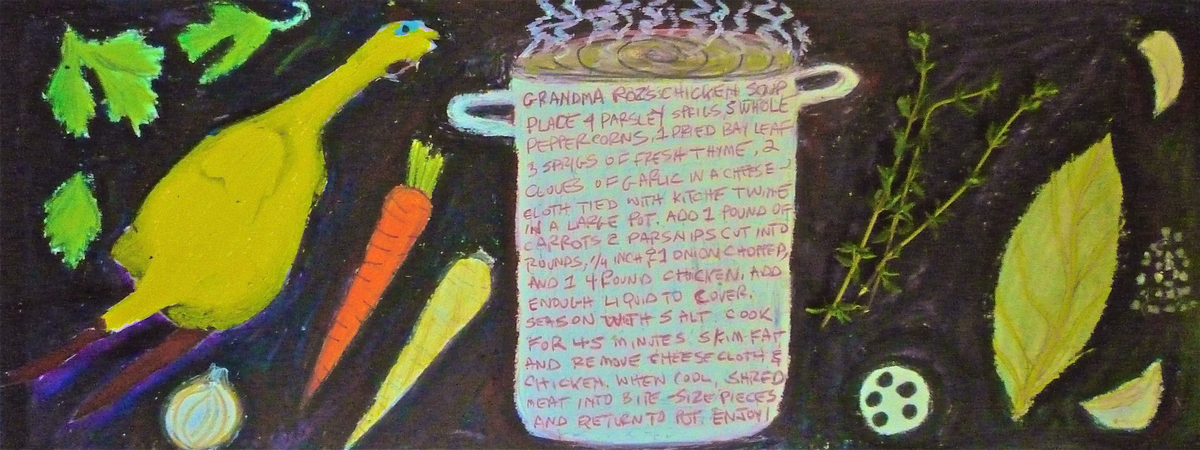 GRANDMA ROZS CHICKEN SOUP
PLACE 4 PARSLEY SPRIGS, 5 WHOLE
PEPPERCORNS, 1 DRIED BAY LEAF
3 SPRIGS OF FRESH THYME, 2
CLOVES OF GARLIC IN A CHEESE-
CLOTH TIED WITH KITCHE TWINE
IN A LARGE POT. ADD 1 POUND OF
CARROTS 2 PARSNIPS CUT INTO
ROUNDS, 1/4 INCH & 1 ONION CHOPPED,
AND 1 4 POUND CHICKEN. ADD
ENOUGH LIQUID TO COVER.
SEASON WITH SALT. COOK
FOR 45 MINUTES. SKIM FAT
AND REMOVE CHEESECLOTH &
CHICKEN. WHEN COOL, SHRED
MEAT INTO BITE-SIZE PIECES
AND RETURN TO POT. ENJOY!